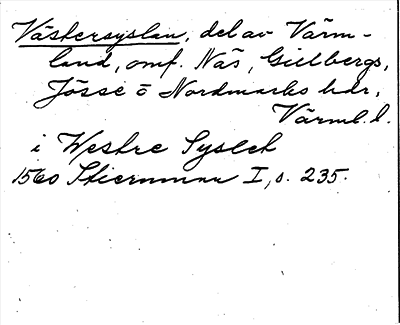 Västersyslan, del av Värm-
land, omf. Näs, Gillbergs,
Jösse o Nordmarks hdr,
Värml. l.
i Westre Sysleth
1560 Stiernman I, s. 235.